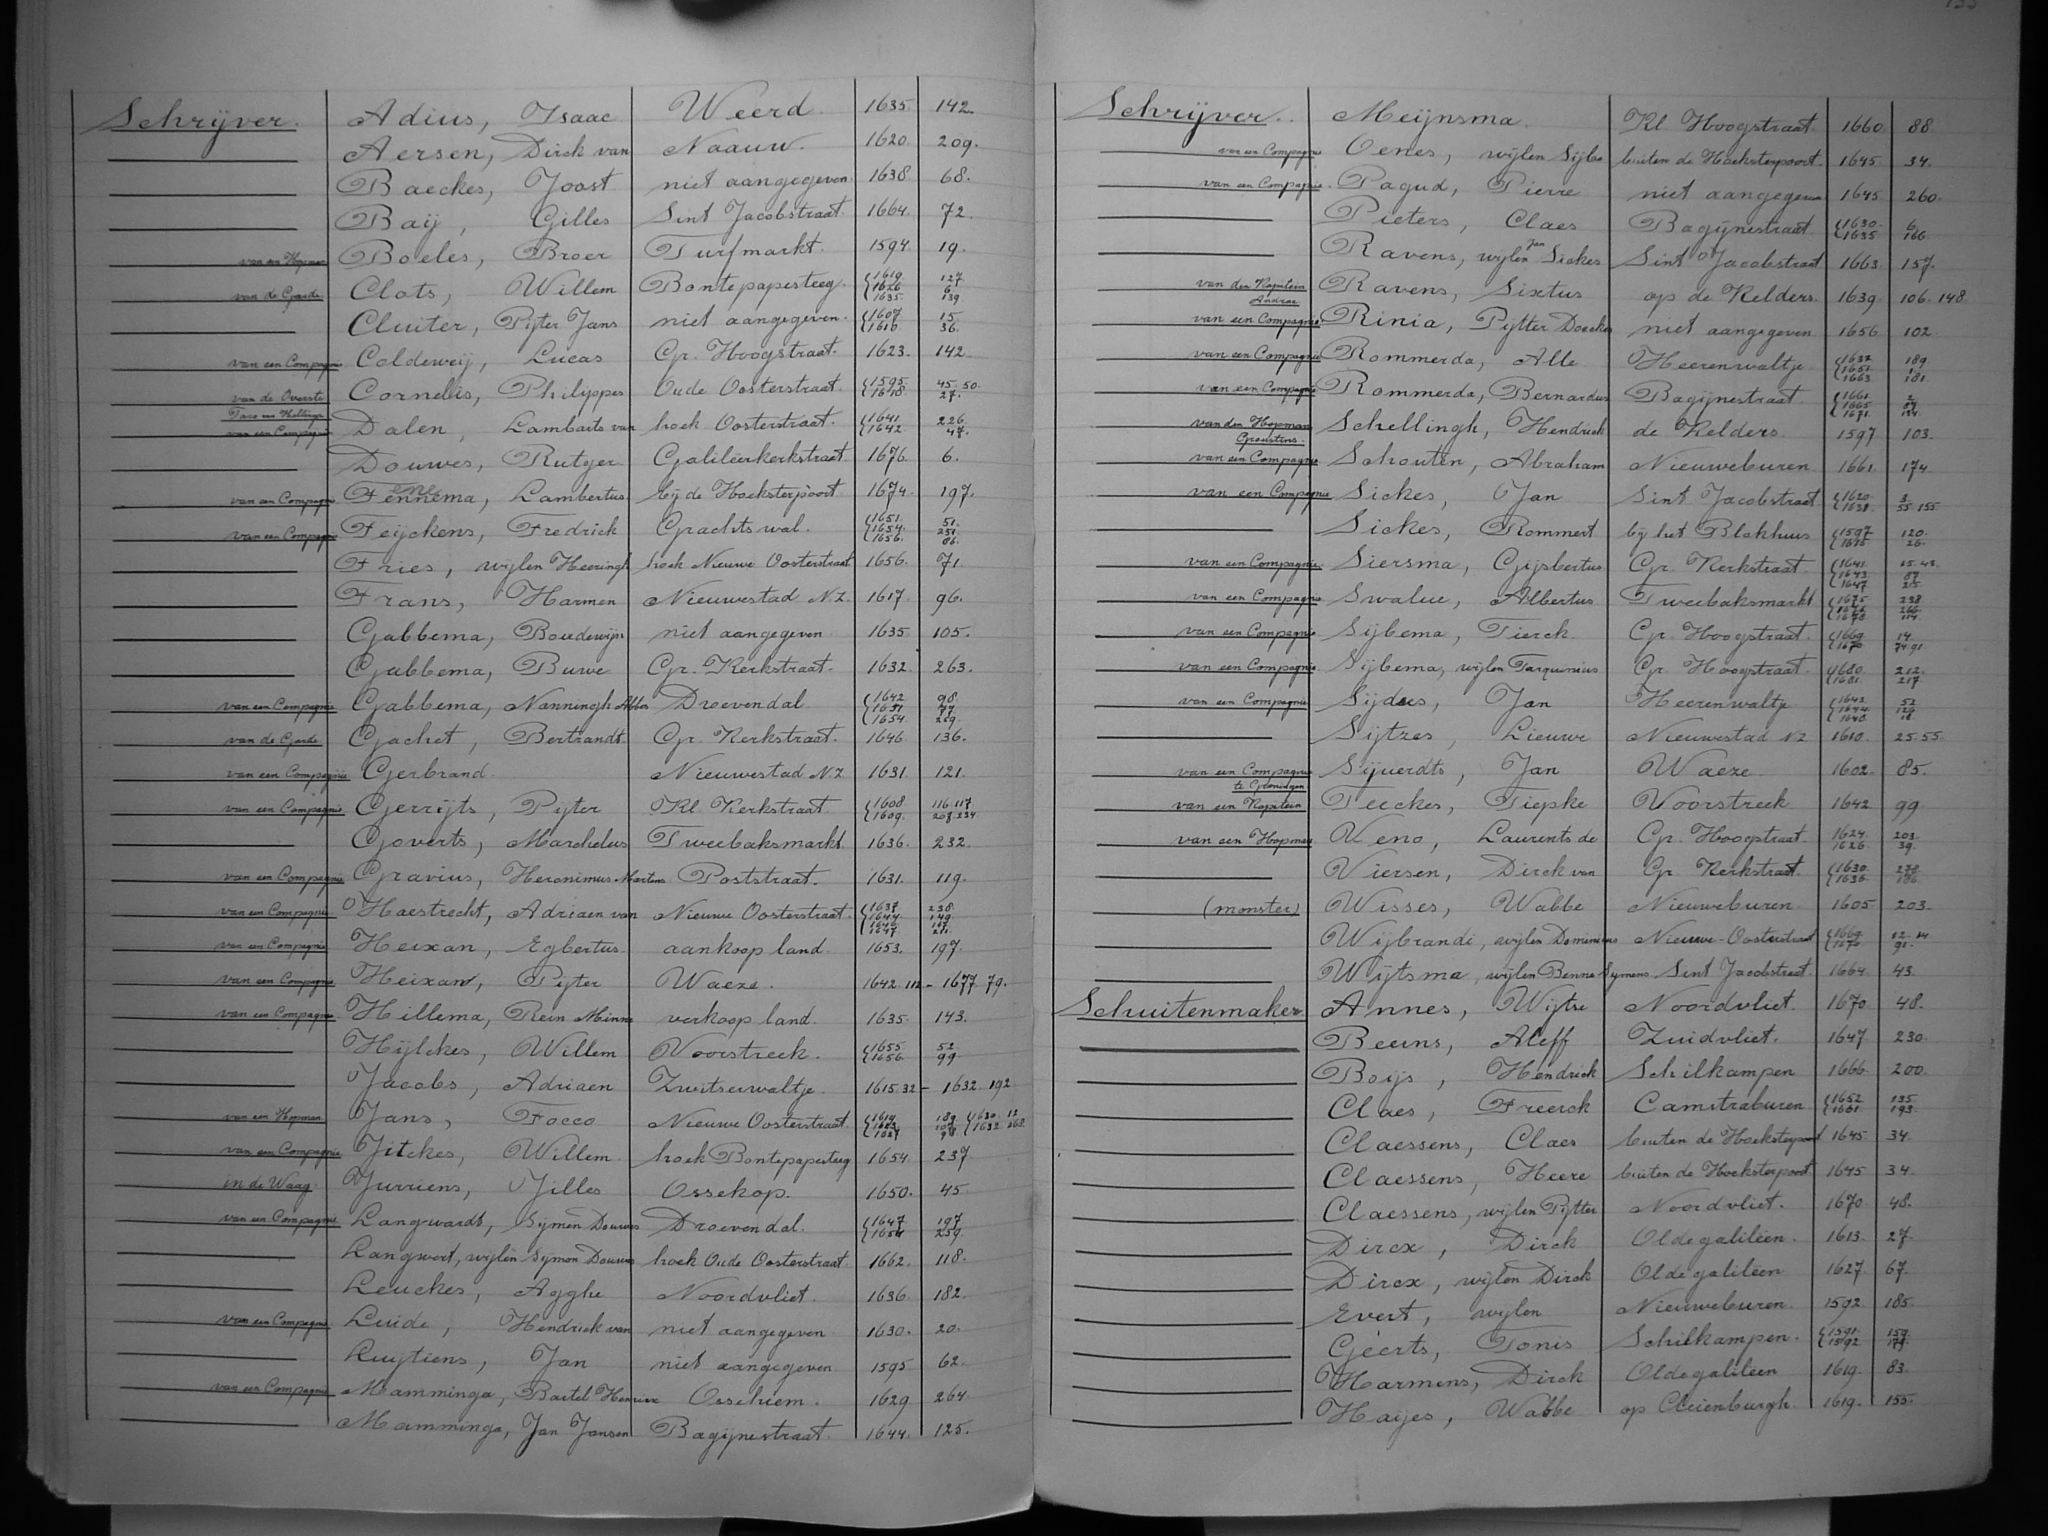 Schrijver. Adius, Isaac Weerd. 1635. 142.
Aersen, Dirck van Naauw. 1620. 209.
Baeckes, Joost niet aangegeven. 1638 68.
Baij, Gilles Sint Jacobstraat. 1664. 72.
van een Hopman Boeles, Broer Turfmarkt. 1594. 19.
van de Garde Clots, Willem Bontepapesteeg. 1619. 1626 1635 127 6 139.
Cluiter, Pijter Jans niet aangegeven. 1607 1610 15. 36.
van een Compagnie Coldeweij, Lucas Gr. Hoogstraat. 1623. 142.
van de Overste Cornelis, Philippes Oude Oosterstraat. 1595. 1618. 45. 50. 27.
van een Compagnie Dalen, Lambarts van hoek Oosterstraat. 1641. 1642 226. 47.
Douwes, Rutger Galileerkerkstraat 1676 6.
van een Compagnie Fennema, Lambertus bij de Hoeksterpoort 1674. 197.
van een Compagnie Feijckens, Fredrick Grachtswal. 1651. 1654. 1656. 51. 251. 86.
Fries, wijlen Heeringh hoek Nieuwe Oosterstraat 1656. 71.
Frans, Harmen Nieuwestad NZ. 1617 96.
Gabbema, Boudewijn niet aangegeven 1635 105.
Gabbema, Buwe Gr. Kerkstraat. 1632. 263.
van een Compagnie Gabbema, Nanningh Abbes Droevendal. 1642 1651 1654. 98.
van de Garde Gachet, Bertrandt Gr. Kerkstraat. 1646 136.
van een Compagnie Gerbrand. Nieuwestad NZ 1631. 121.
van een Compagnie Gerrijts, Pijter Kl. Kerkstraat. 1608. 1609. 116. 117. 207. 234.
Goverts, Marchelus Tweebaksmarkt. 1636. 232.
van een Compagnie Gravius, Heronimus Martens Poststraat. 1631. 119.
van een Compagnie Haestrecht, Adriaen van Nieuwe Oosterstraat. 1637 1644. 238. 149.
van een Compagnie Heixan, Egbertus aankoop land. 1653. 197.
van een Compagnie Heixan, Pijter Waeze. 1642. 112. - 1677 79.
van een Compagnie Hillema, Rein Minne verkoop land. 1635. 143.
Hijlckes, Willem Voorstreek. 1655 1656. 52. 99
Jacobs, Adriaen Zwitserwaltje. 1615. 32 - 1632. 192
van een Hopman Jans, Focco Nieuwe Oosterstraat. 1614 1627 189 1630. 12 1632. 268
van een Compagnie Jitckes, Willem hoek Bontepapesteeg 1654. 237
in de Waag. Jurriens, Jilles Ossekop. 1650. 45.
van een Compagnie Langwardt, Sijmen Douwes Droevendal. 1647 1654 197 259.
Langwert, wijlen Sijmon Douwes hoek Oude Oosterstraat 1662. 118.
Leuckes, Agghe Noordvliet. 1636. 182.
van een Compagnie Luide, Hendrick van niet aangegeven 1630. 20.
Luijtiens, Jan niet aangegeven 1595 62.
van een Compagnie Mamminga, Bartel Henricx Osschiem. 1629. 264
Mamminga, Jan Jansen Bagijnestraat. 1644. 125.
Schrijver. Meijnsma. Kl. Hoogstraat. 1660. 88.
van een Compagnie Oenes, wijlen Sijbe buiten de Hoeksterpoort. 1645. 34.
van een Compagnie. Pagud, Pierre niet aangegeven 1645 260.
Pieters, Claes Bagijnestraat 1630. 1635 6 166.
Ravens, wijlen Jan Sickes Sint Jacobstraat 1663. 157.
van den Kapitein Andrae Ravens, Sixtus op de Kelders. 1639. 106. 148.
van een Compagnie Rinia, Pijtter Doeckes niet aangegeven 1656. 102.
van een Compagnie Rommerda, Alle Heerenwaltje 1632. 1651. 1663. 189 181.
van een Compagnie Rommerda, Bernardus Bagijnestraat. 1661. 1665 1671. 2.
van den Hopman Schellingh, Hendrick de Kelders. 1597 103.
van een Compagnie Schouten, Abraham Nieuweburen 1661. 174
van een Compagnie Sickes, Jan Sint Jacobstraat 1620 1631. 3. 55. 155
Sickes, Rommert bij het Blokhuis 1597 120. 26.
van een Compagnie. Siersma, Gijsbertus Gr. Kerkstraat. 1641. 1643. 1647
van een Compagnie Swalue, Albertus Tweebaksmarkt 1675 238
van een Compagnie Sijbema, Tierck Gr. Hoogstraat. 1669. 1670 14. 74. 91.
van een Compagnie. Sijbema, wijlen Tarquinius Gr. Hoogstraat. 1680. 1681. 212. 217
van een Compagnie Sijdses, Jan Heerenwaltje 1642. 1644. 52
Sijtzes, Lieuwe Nieuwestad NZ 1610. 25. 55.
van een Compagnie Sijuerdts, Jan Waeze. 1602. 85.
van een Kapitein Teeckes, Tiepke Voorstreek 1642 99
van een Hopman Veno, Laurents de Gr. Hoogstraat. 1624. 1626. 203. 39.
Viersen, Dirck van Gr. Kerkstraat. 1630. 1636.
(monster) Wisses, Wabbe Nieuweburen. 1605 203.
Wijbrandi, wijlen Dominicus Nieuwe-Oosterstraat 1669. 1670 12. 14 91.
Wijtsma, wijlen Benne Sijmens Sint Jacobstraat. 1664 43.
Schuitenmaker Annes, Wijtse Noordvliet. 1670. 48.
Beerns, Aleff Zuidvliet. 1647 230.
Boijs, Hendrick Schilkampen 1666. 200.
Claes, Freerck Camstraburen 1652 1661 135 193.
Claessens, Claes buiten de Hoeksterpoort 1645. 34.
Claessens, Heere buiten de Hoeksterpoort 1645 34.
Claessens, wijlen Pijtter Noordvliet. 1670. 48.
Dircx, Dirck Oldegaliléen. 1613. 27.
Dircx, wijlen Dirck Oldegaliléen 1627 67.
Evert, wijlen Nieuweburen. 1592. 185.
Geerts, Tonis Schilkampen. 1591. 1592 159.
Harmens, Dirck Oldegaliléen 1619. 83.
Haijes, Wabbe op Cleienburgh. 1619. 155.